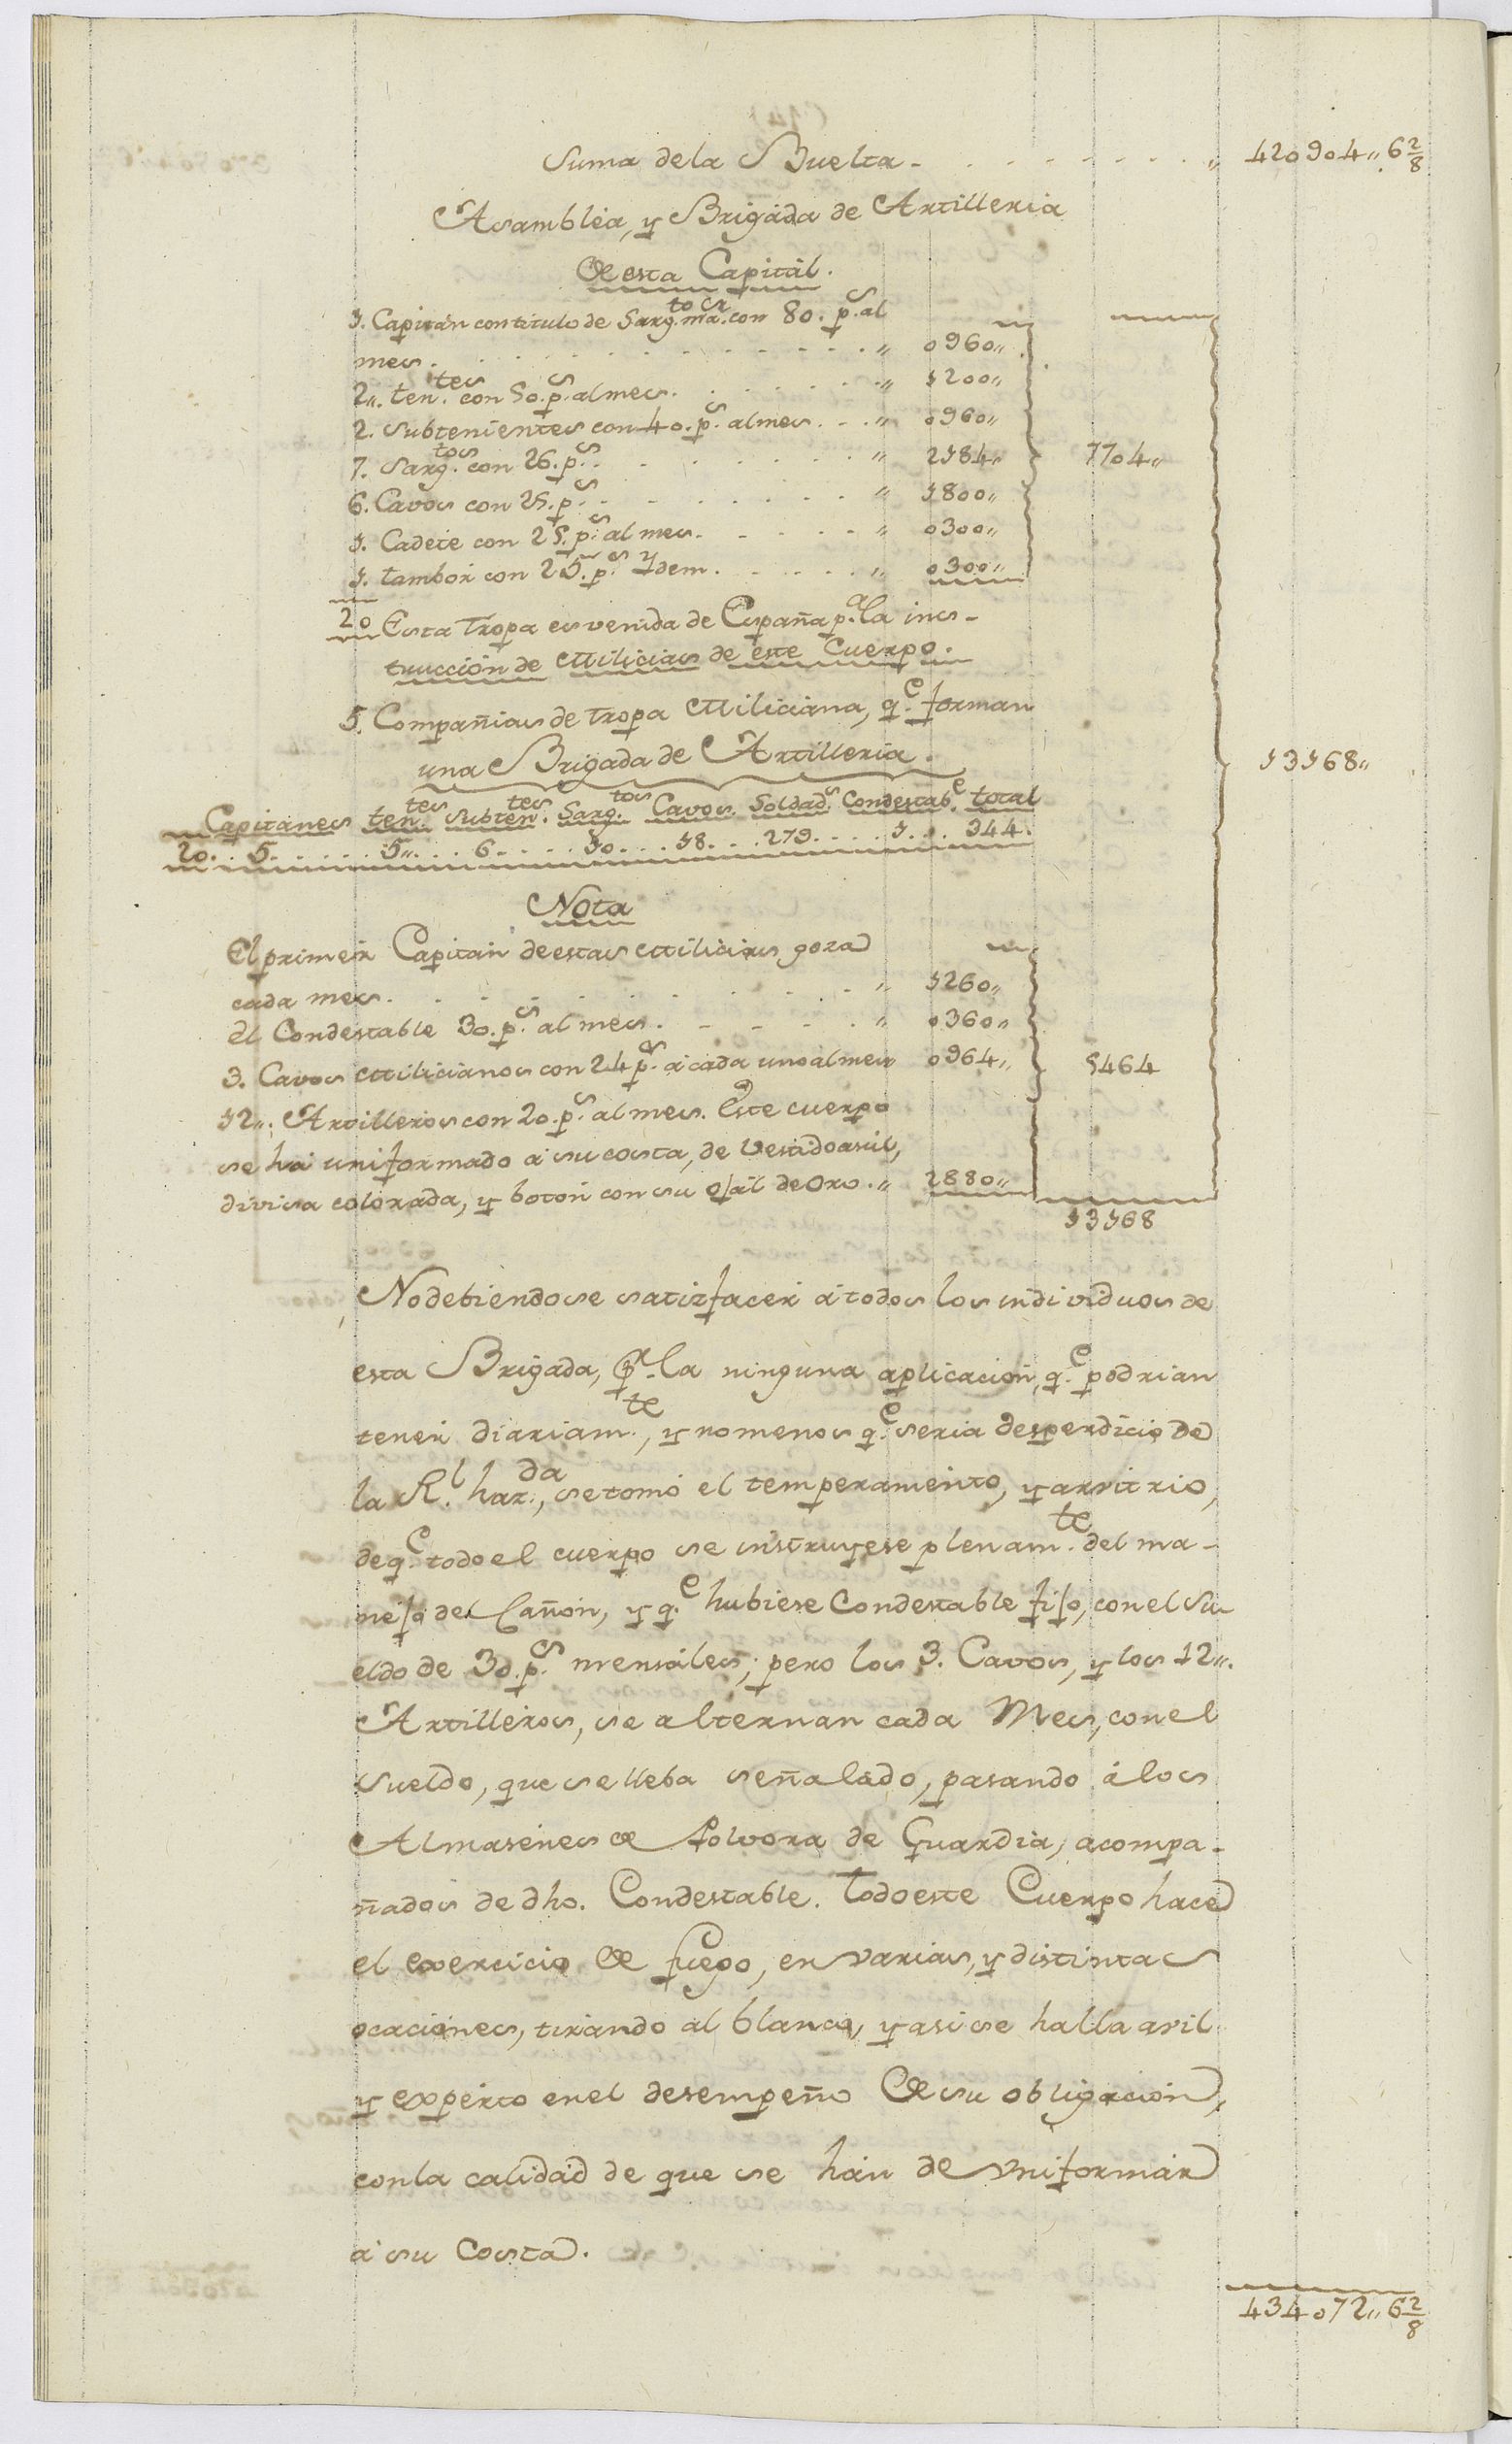 Suma de la Buelta - . . . . . . . . „ 420904„ 6 2/8
Asamblea, y Brigada de Artilleria
de esta Capital.
1. Capitán con titulo de Sarg.to m.or con 80. p.s al
mes. . . . . . . . . . . . „ 0960„
2„. ten.tes con 50. p.s al mes. . . . . . „ 1200„
2. Subtenientes con 40. p.s al mes. . . „ 0960„
7. Sarg.tos con 26. p.s . . . . . . . „ 2184„ 7704„
6. Cavos con 25. p.s . . . . . . . „ 1800„
1. Cadete con 25. p.s al mes. . . . . . „ 0300„
1. tambor con 25. p.s Ydem. . . . . . „ 0300„
20 Esta Tropa es venida de España p.a la ins-
truccion de Milicias de este Cuerpo.
5. Compañias de Tropa Miliciana, q.e forman
una Brigada de Artilleria. 13168„
Capitanes ten.tes Subten.tes Sarg.tos Cavos Soldad.s Condestab.e total
20. . 5. . . . . 5„. . . 6. . . . 30. . . 18. . . 279. . . . 1. . . 344.
Nota
El primer Capitan de estas Milicias goza
cada mes. . . . . . . . . . „ 1260„
el Condestable 30. p.s al mes. . . . . . „ 0360„
3. Cavos Milicianos con 24 p.s á cada uno al mes 0964„ 5464
12„. Artilleros con 20. p.s al mes. Este cuerpo
se ha uniformado á su costa, de Vestido asul,
divisa colorada, y boton con su ojal de Oro. „ 2880„
13168
No debiendose satisfacer á todos los individuos de
esta Brigada, p.r la ninguna aplicacion, q.e podrian
tener diariam.te, y no menos q.e seria desperdicio de
la R.l haz.da, se tomó el temperamento, y arvitrio,
de q.e todo el cuerpo se instruyese plenam.te del ma-
nejo del Cañon, y q.e hubiese Condestable fijo, con el Su-
eldo de 30. p.s mensales; pero los 3. Cavos, y los 12„.
Artilleros, se alternan cada Mes, con el
Sueldo, que se lleba señalado, pasando á los
Almasenes de Polvora de Guardia, acompa-
ñados de dho. Condestable. Todo este Cuerpo hace
el exercicio de fuego, en varias, y distintas
ocaciones, tirando al blanco, y asi se halla avil
y experto en el desempeño de su obligacion,
con la calidad de que se han de Vniformar
á su Costa.
434072„ 6 2/8